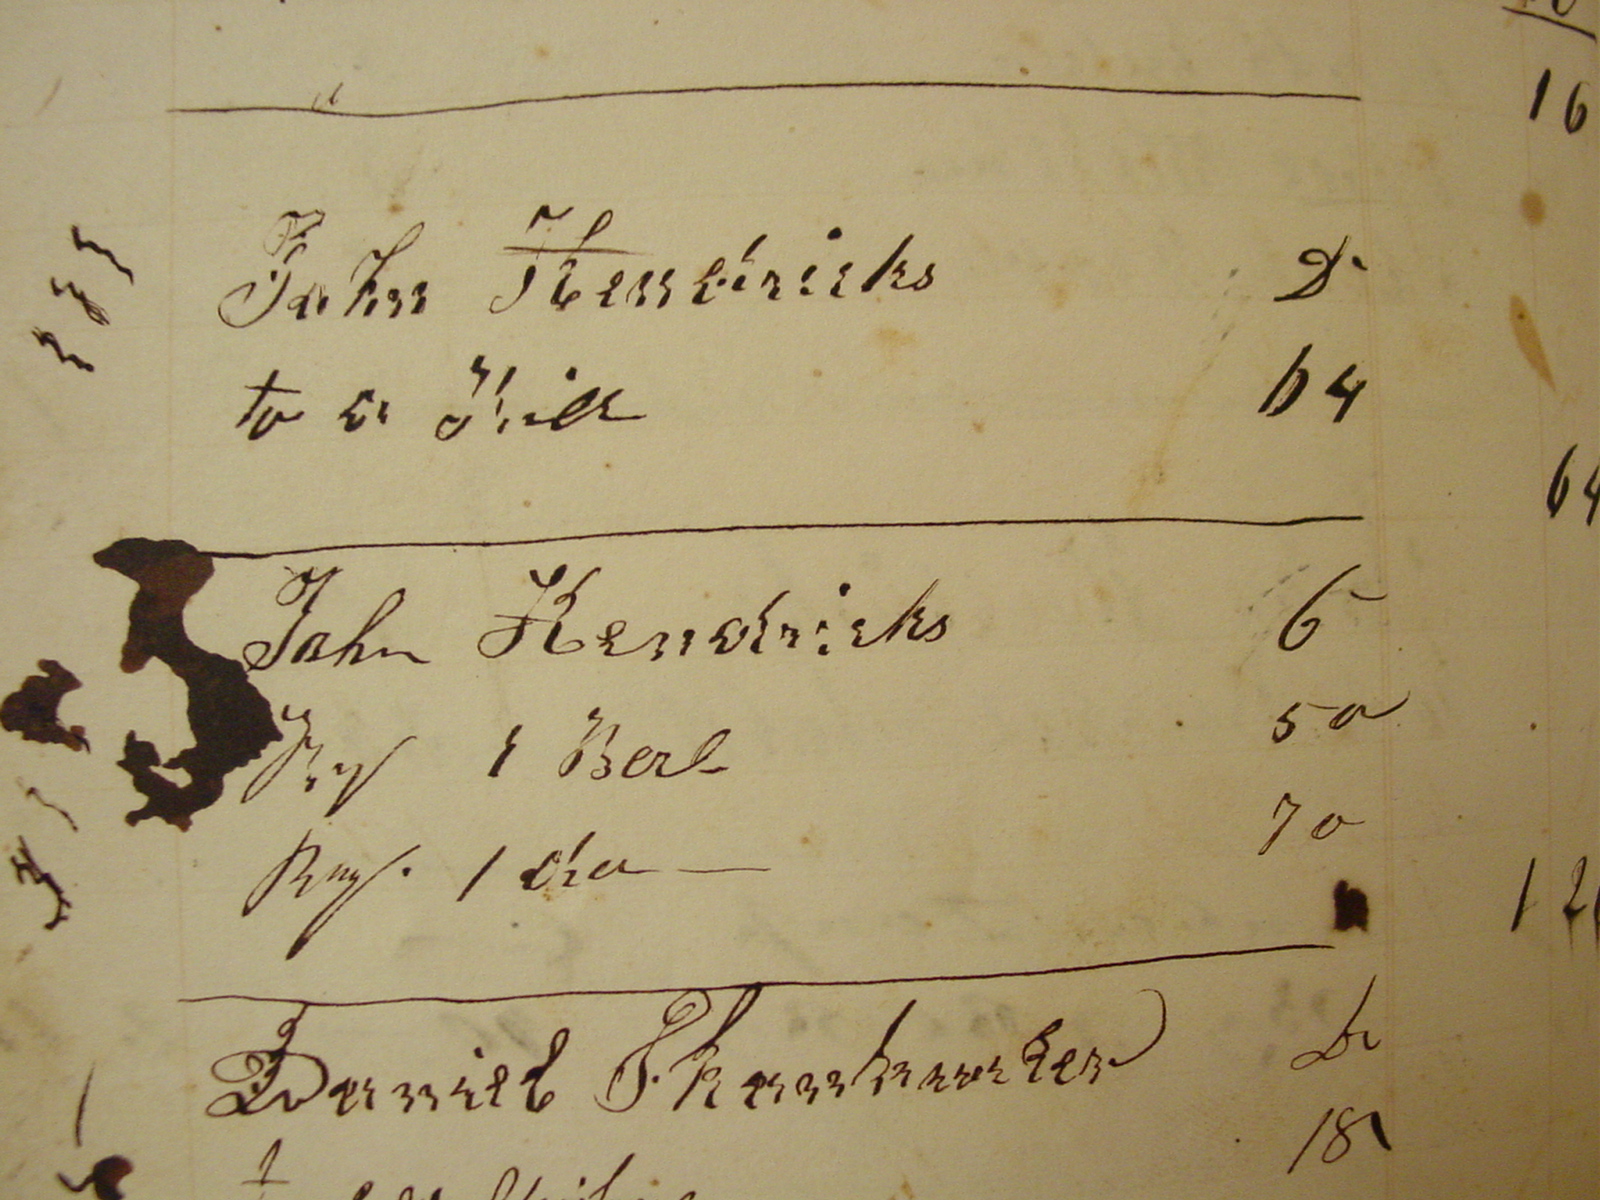 16
John Kendricks Dr
to a 64
64
John Kendricks Cr
By 1 Berl 50
By 1 do — 70
12
Daniel Dr
18